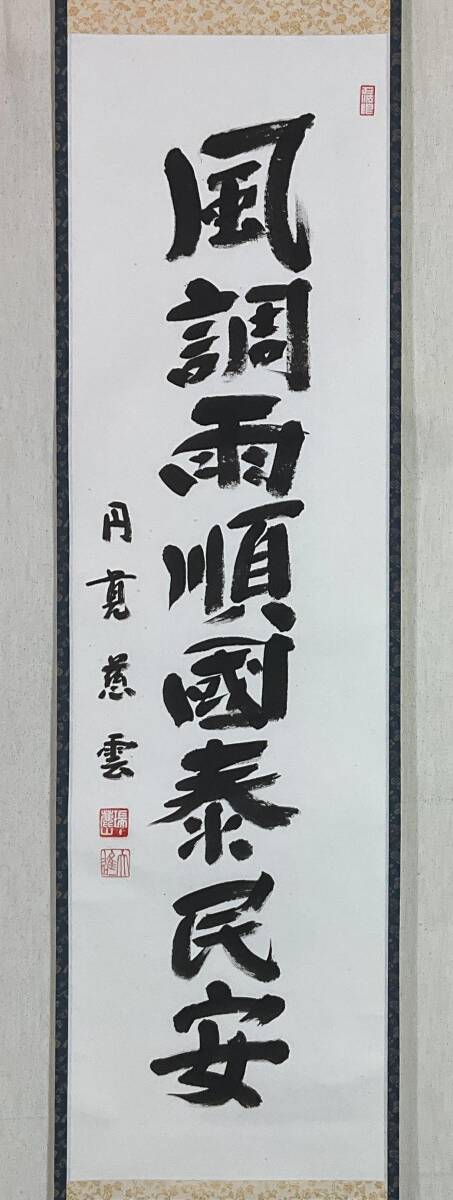 風調雨順國泰民安
円覚慈雲